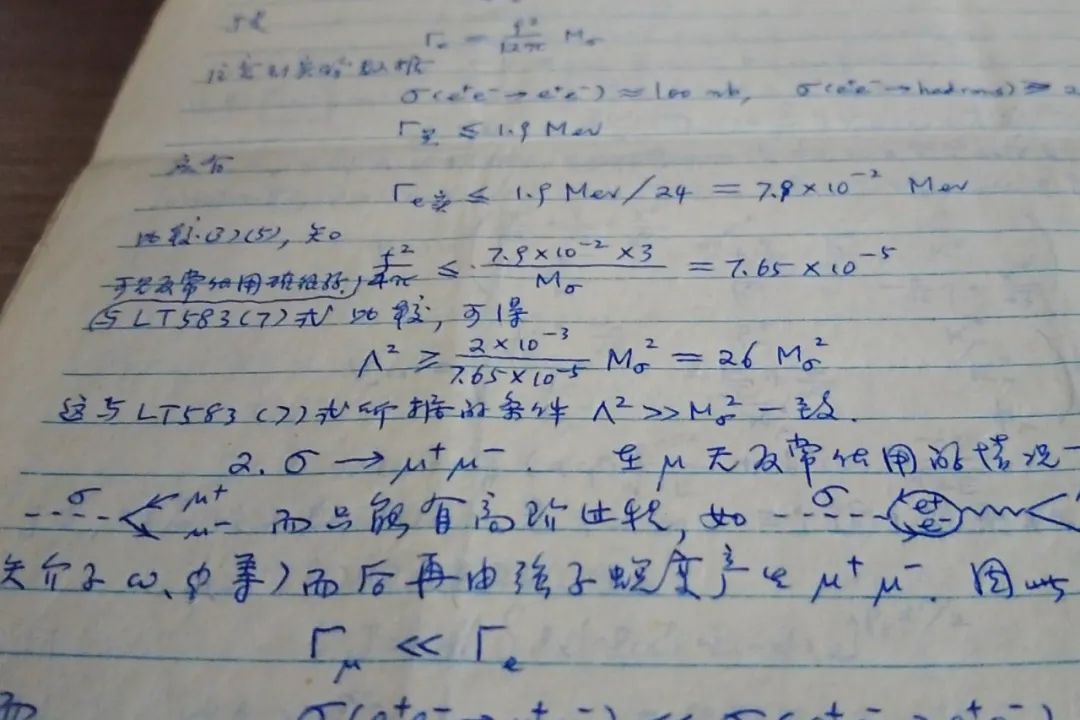 于是
Γₑ = f²/12π M_σ
注意到实验数据
σ(e⁺e⁻→e⁺e⁻) ≈ 100 nb, σ(e⁺e⁻→hadrons) ≥ 2
Γ宽 ≤ 1.9 Mev
应有
Γₑ宽 ≤ 1.9 Mev/24 = 7.9×10⁻² Mev
比较(3)(5), 知 f²/4π ≤ 7.9×10⁻²×3/M_σ = 7.65×10⁻⁵
与LT583(7)式比较, 可得
Λ² ≥ 2×10⁻³/7.65×10⁻⁵ M_σ² = 26 M_σ²
这与LT583(7)式所据的条件 Λ²≫M_σ² 一致.
2. σ → μ⁺μ⁻. 在μ无反常作用的情况
σ μ⁺ μ⁻ 而只能有高阶过程, 如 σ e⁺ e⁻
矢介子ω、φ等)而后再由强子蜕变产生μ⁺μ⁻. 因此
Γ_μ ≪ Γₑ
而 σ(e⁺e⁻→μ⁺μ⁻) ≪ σ(e⁺e⁻→e⁺e⁻)